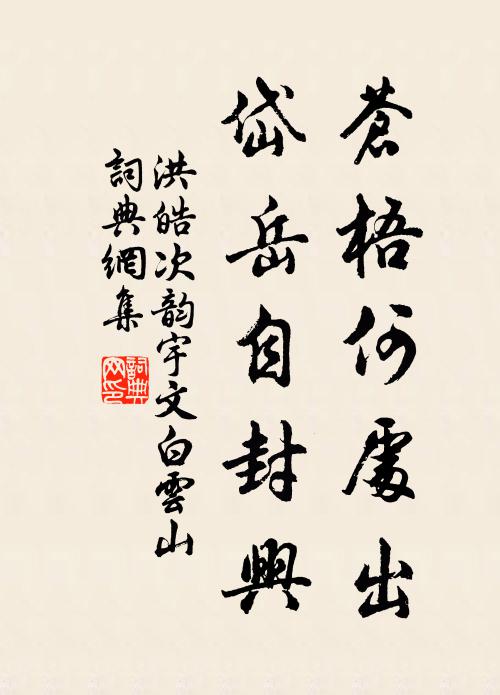 蒼梧何處出
岱岳自封興
洪皓次韵宇文白雲山
詞典網集
詞典网印